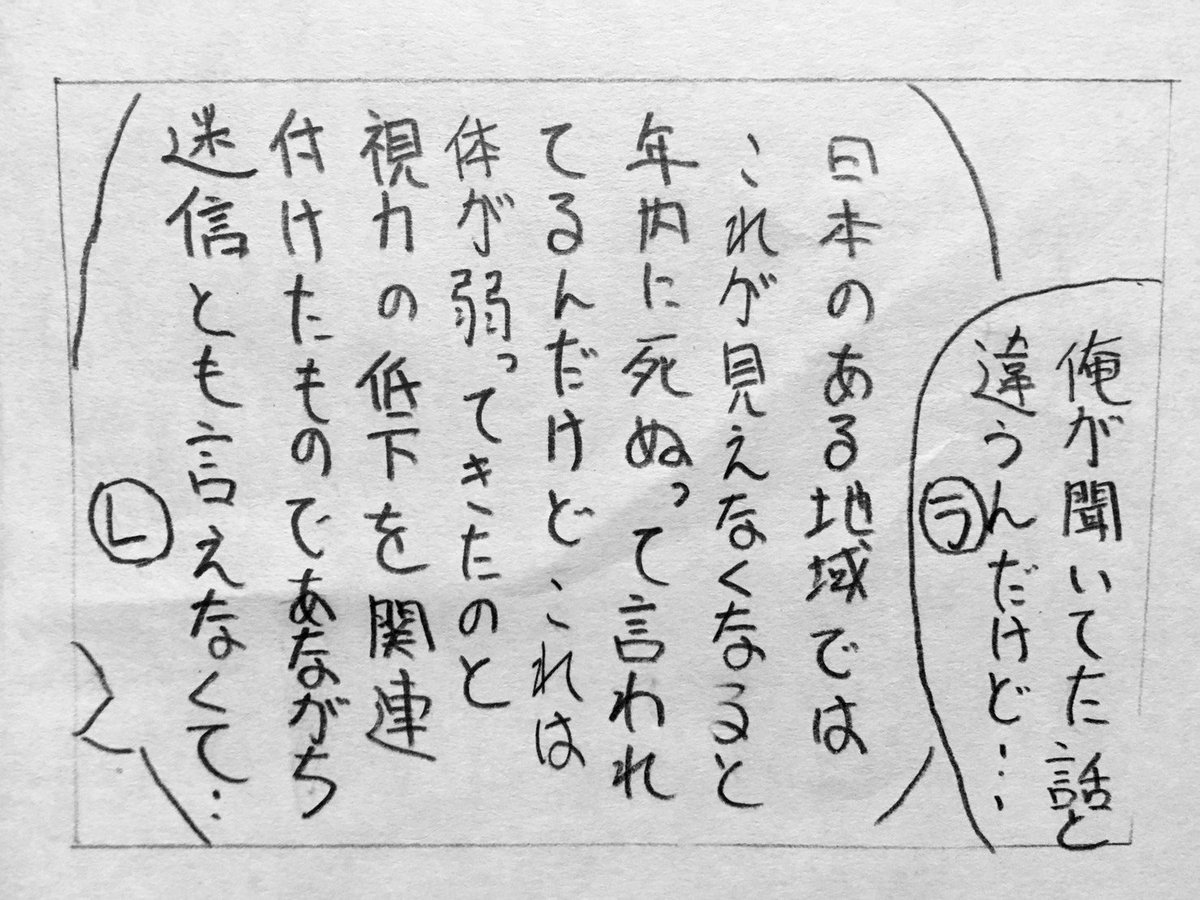 俺が聞いてた話と
違うんだけど…
ラ
日本のある地域では
これが見えなくなると
年内に死ぬって言われ
てるんだけど、これは
体が弱ってきたのと
視力の低下を関連
付けたものであながち
迷信とも言えなくて…
レ